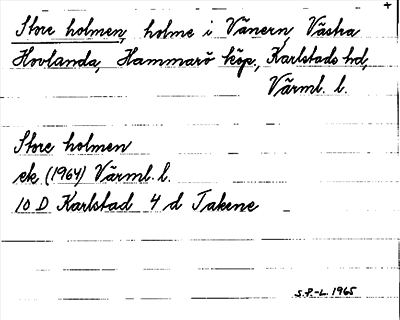 Store holmen, holme i Vänern, Västra
Hovlanda, Hammarö köp., Karlstads hd,
Värml. l.
Store holmen
ek (1964) Värml. l.
10 D Karlstad 4 d Takene
S.P-L. 1965